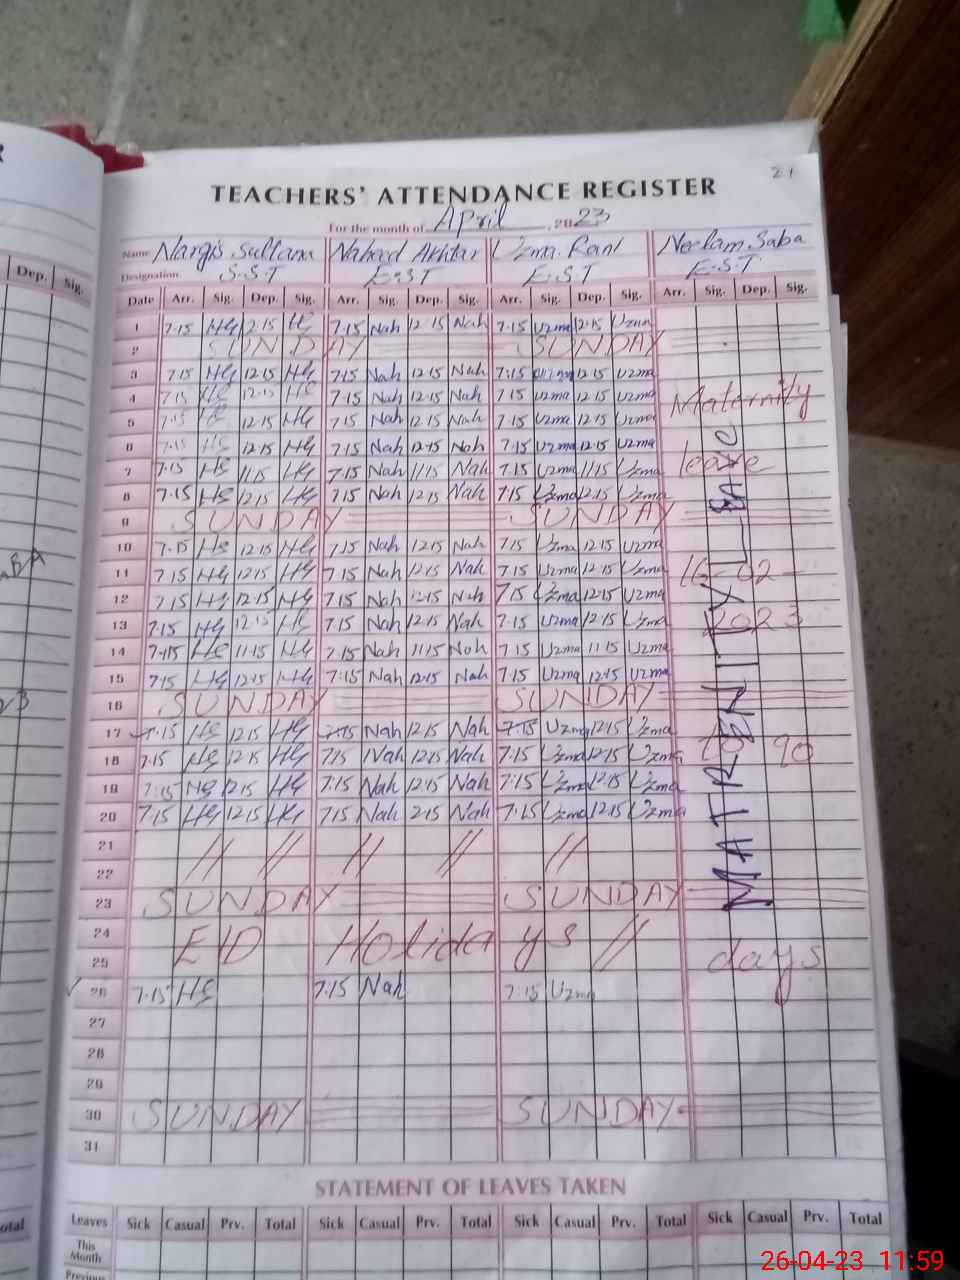 21
TEACHERS' ATTENDANCE REGISTER
For the month of April, 2023
Name Nargis Sultana Naheed Akhtar Uzma Rani Neelam Saba
Designation S.S.T E.S.T E.S.T E.S.T
Dep. Sig.
Date Arr. Sig. Dep. Sig. Arr. Sig. Dep. Sig. Arr. Sig. Dep. Sig. Arr. Sig. Dep. Sig.
1 7.15 12.15 7.15 Nah 12.15 Nah 7.15 Uzma 12.15 Uzma
2 SUNDAY SUNDAY
3 7.15 12.15 7.15 Nah 12.15 Nah 7.15 Uzma 12.15 Uzma
4 7.15 12.15 7.15 Nah 12.15 Nah 7.15 Uzma 12.15 Uzma
Maternity
5 7.15 12.15 7.15 Nah 12.15 Nah 7.15 Uzma 12.15 Uzma
6 7.15 12.15 7.15 Nah 12.15 Nah 7.15 Uzma 12.15 Uzma
7 7.15 11.15 7.15 Nah 11.15 Nah 7.15 Uzma 11.15 Uzma
leave
8 7.15 12.15 7.15 Nah 12.15 Nah 7.15 Uzma 12.15 Uzma
9 SUNDAY SUNDAY
10 7.15 12.15 7.15 Nah 12.15 Nah 7.15 Uzma 12.15 Uzma
11 7.15 12.15 7.15 Nah 12.15 Nah 7.15 Uzma 12.15 Uzma
16-02-
12 7.15 12.15 7.15 Nah 12.15 Nah 7.15 Uzma 12.15 Uzma
13 7.15 12.15 7.15 Nah 12.15 Nah 7.15 Uzma 12.15 Uzma
2023
14 7.15 11.15 7.15 Nah 11.15 Nah 7.15 Uzma 11.15 Uzma
15 7.15 12.15 7.15 Nah 12.15 Nah 7.15 Uzma 12.15 Uzma
16 SUNDAY SUNDAY
17 7.15 12.15 7.15 Nah 12.15 Nah 7.15 Uzma 12.15 Uzma
18 7.15 12.15 7.15 Nah 12.15 Nah 7.15 Uzma 12.15 Uzma
90
19 7.15 12.15 7.15 Nah 12.15 Nah 7.15 Uzma 12.15 Uzma
20 7.15 12.15 7.15 Nah 2.15 Nah 7.15 Uzma 12.15 Uzma
21 // // // // //
22
23 SUNDAY SUNDAY
24 EID Holidays //
25 days
26 7.15 7.15 Nah 7.15 Uzma
27
28
29
30 SUNDAY SUNDAY
31
STATEMENT OF LEAVES TAKEN
Leaves Sick Casual Prv. Total Sick Casual Prv. Total Sick Casual Prv. Total Sick Casual Prv. Total
This Month
Previous
26-04-23 11:59